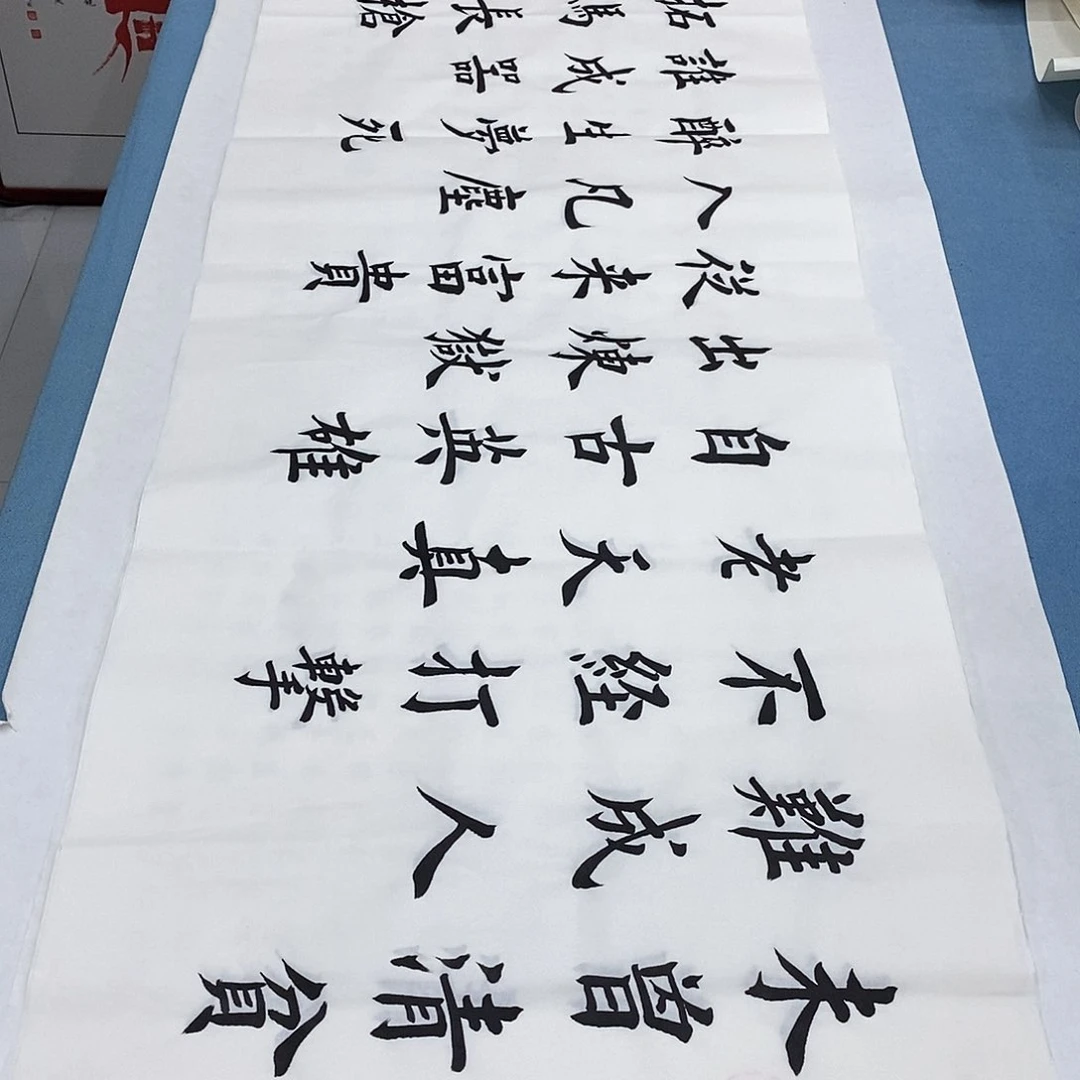 未曾清貧
難成人
不経打擊
老天真
自古英雄
出煉獄
從来富貴
入凡塵
醉生夢死
誰成噐
拓馬長槍